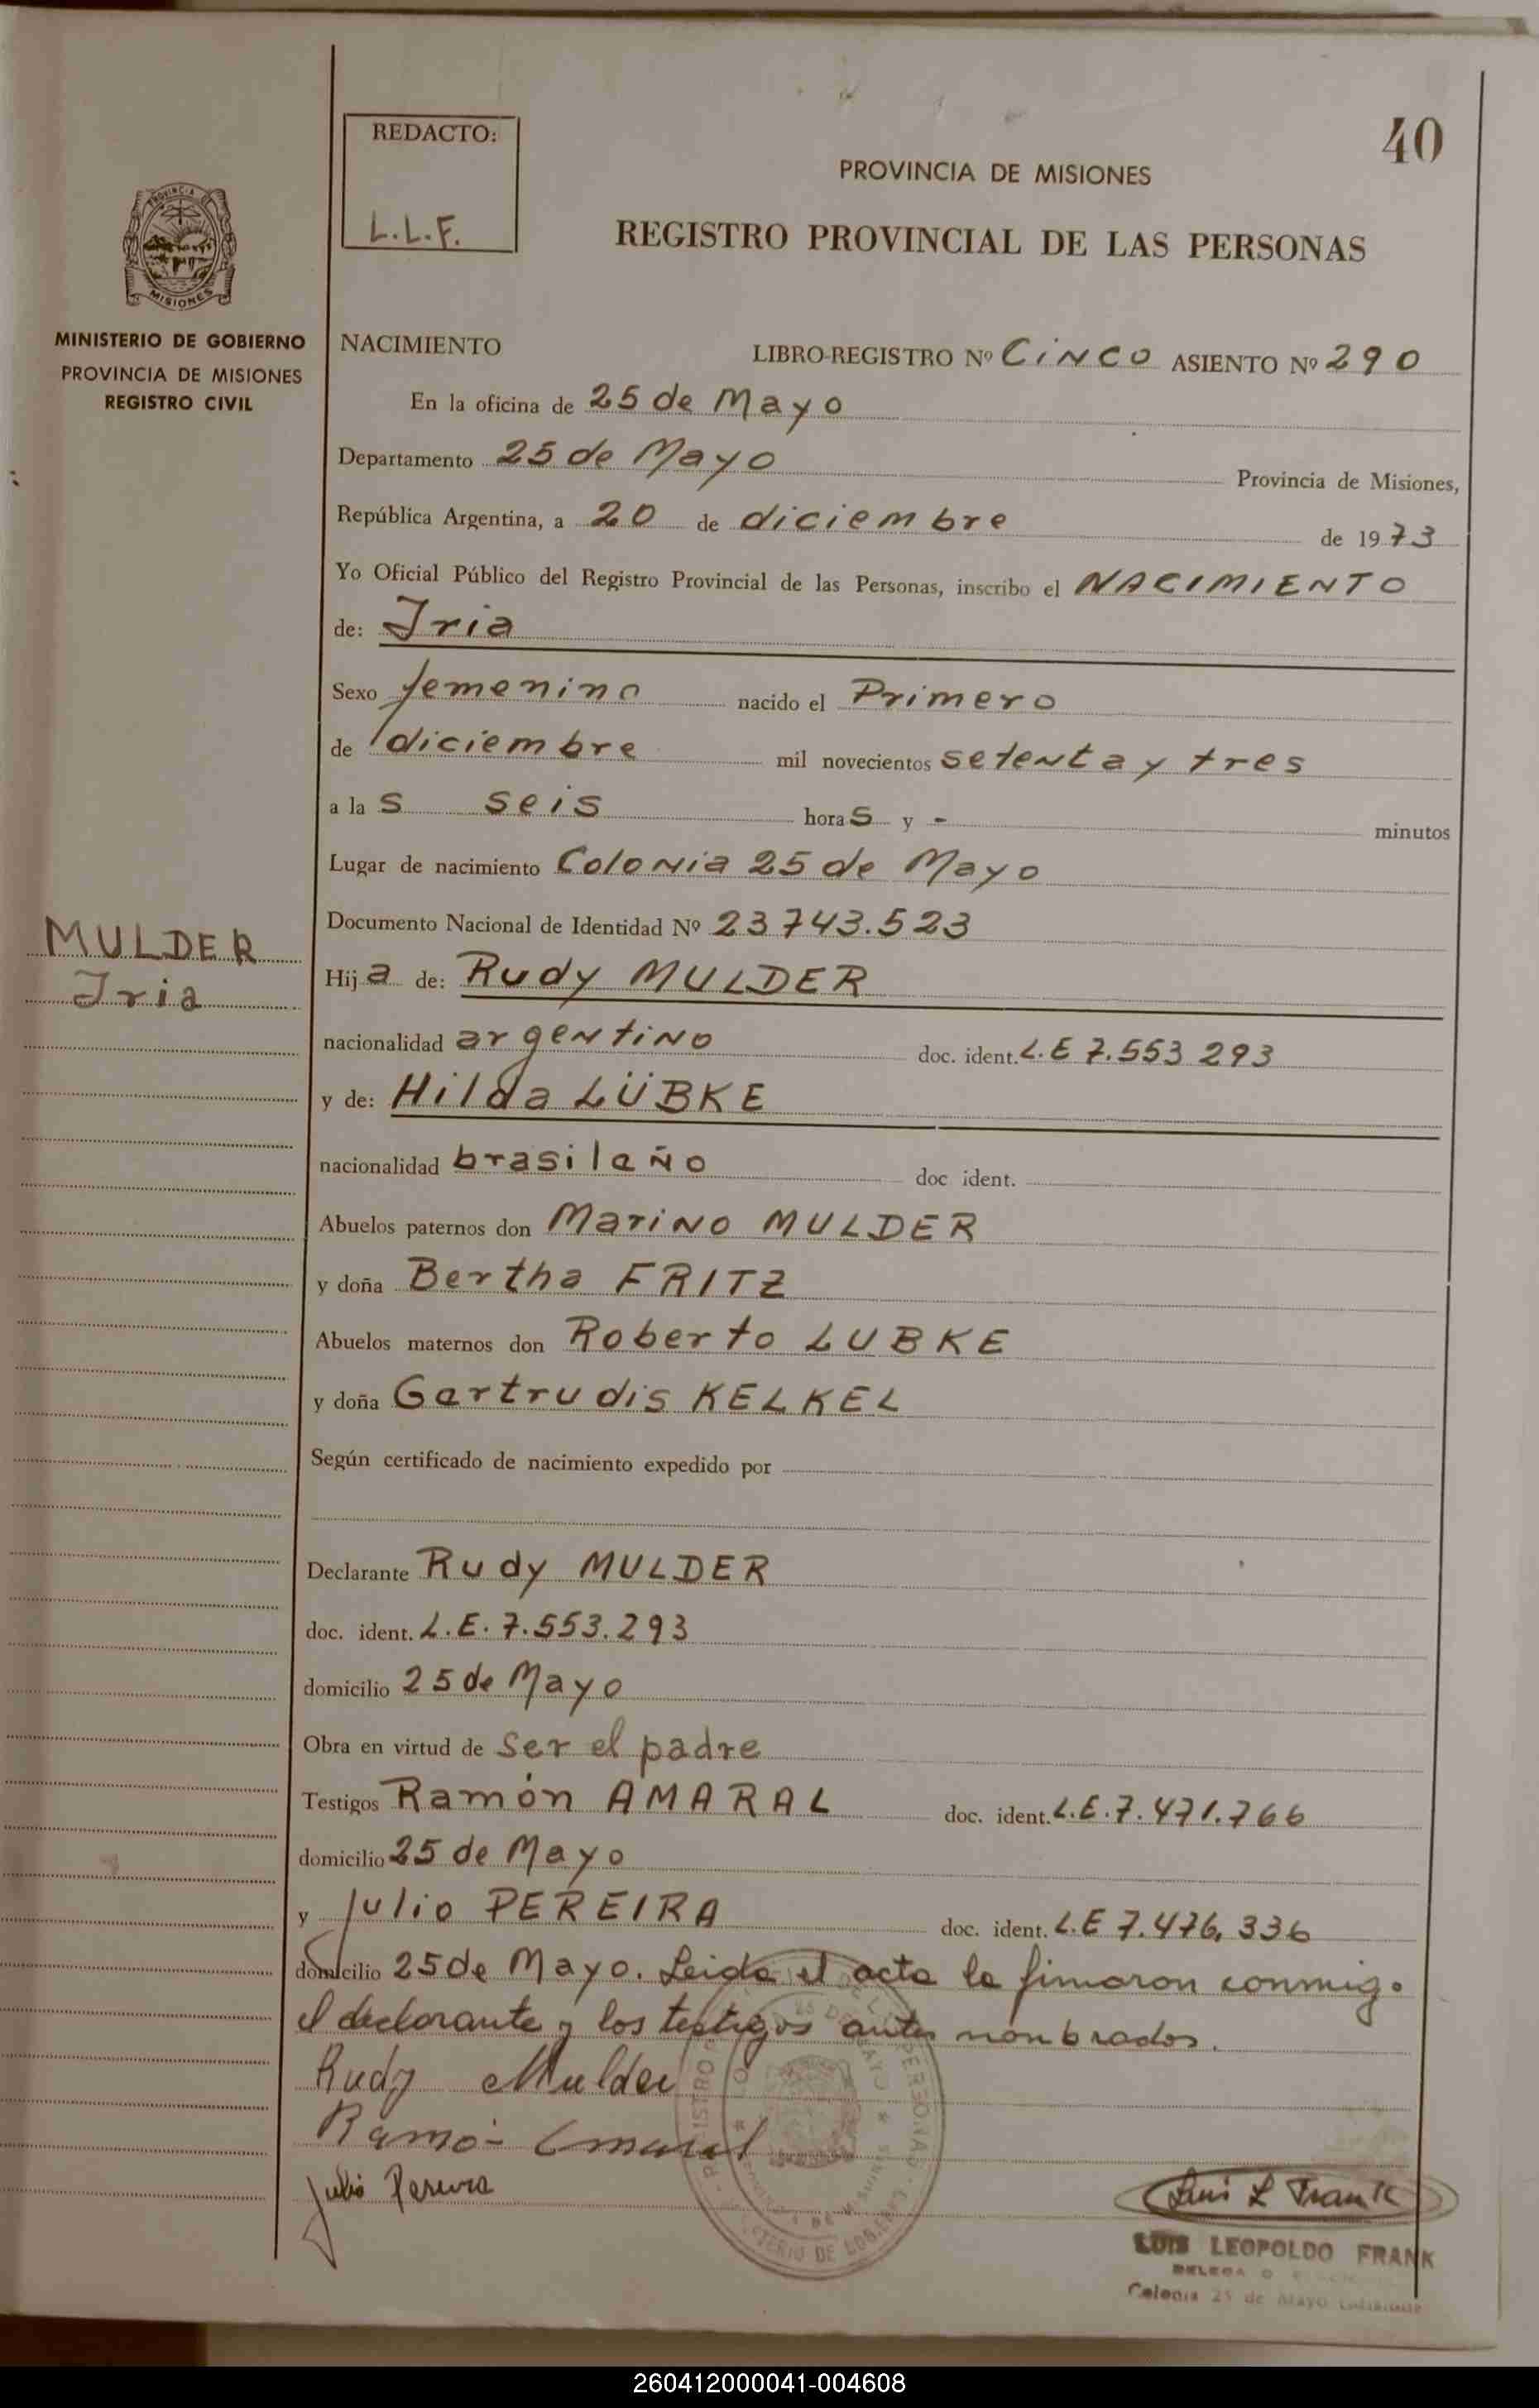 40
REDACTO:
L.L.F.
PROVINCIA DE MISIONES
REGISTRO PROVINCIAL DE LAS PERSONAS
PROVINCIA DE
MISIONES
MINISTERIO DE GOBIERNO
PROVINCIA DE MISIONES
REGISTRO CIVIL
NACIMIENTO LIBRO-REGISTRO Nº CINCO ASIENTO Nº 290
En la oficina de 25 de Mayo
Departamento 25 de Mayo Provincia de Misiones,
República Argentina, a 20 de diciembre de 1973
Yo Oficial Público del Registro Provincial de las Personas, inscribo el NACIMIENTO
de: Iria
Sexo femenino nacido el Primero
de diciembre mil novecientos setenta y tres
a la s seis hora s y - minutos
Lugar de nacimiento Colonia 25 de Mayo
Documento Nacional de Identidad Nº 23743.523
MULDER
Iria
Hij a de: Rudy MULDER
nacionalidad argentino doc. ident. L.E 7.553 293
y de: Hilda LÜBKE
nacionalidad brasileño doc ident.
Abuelos paternos don Marino MULDER
y doña Bertha FRITZ
Abuelos maternos don Roberto LUBKE
y doña Gertrudis KELKEL
Según certificado de nacimiento expedido por
Declarante Rudy MULDER
doc. ident. L.E. 7.553.293
domicilio 25 de Mayo
Obra en virtud de ser el padre
Testigos Ramón AMARAL doc. ident. L.E. 7.471.766
domicilio 25 de Mayo
y Julio PEREIRA doc. ident. L.E 7.476,336
domicilio 25 de Mayo. Leida el acta la fimaron conmigo
el declarante y los testigos antes nombrados.
Rudy Mulder
Ramón Amaral
Julio Pereira
Luis L Frank
LUIS LEOPOLDO FRANK
Colonia 25 de Mayo
260412000041-004608